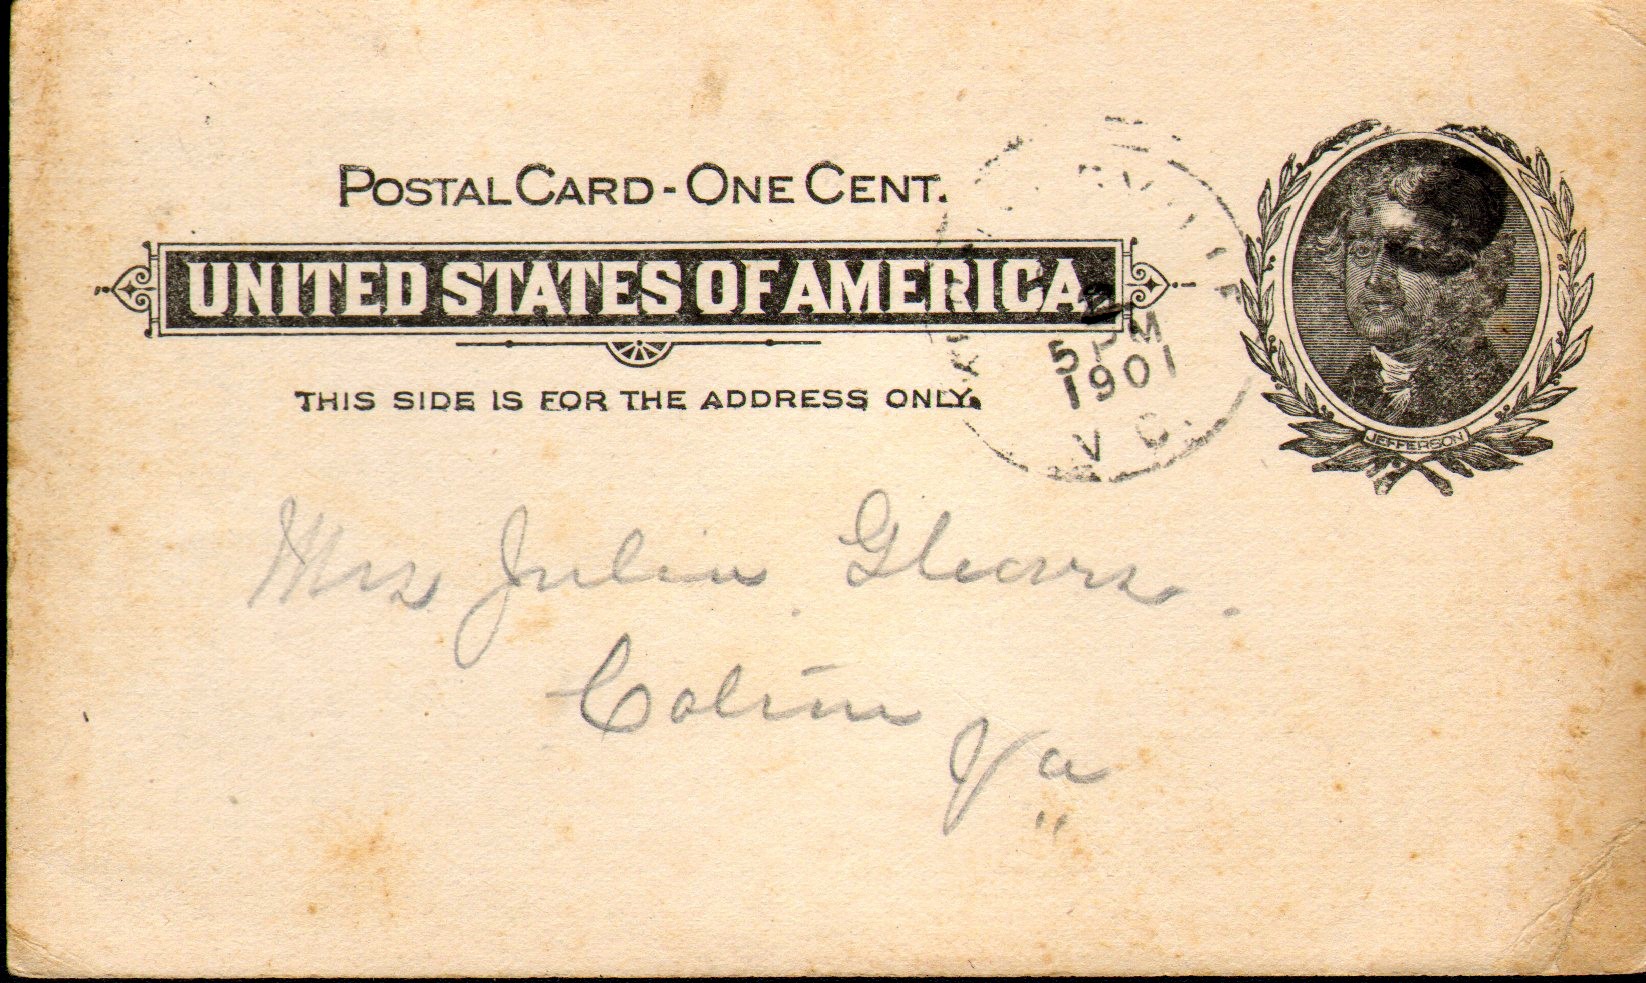 POSTAL CARD - ONE CENT.
UNITED STATES OF AMERICA
THIS SIDE IS FOR THE ADDRESS ONLY.
JEFFERSON
5 PM
1901
Mrs Julia
Va